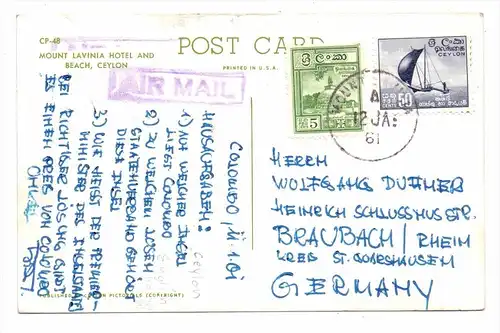 CP-48
MOUNT LAVINIA HOTEL AND
BEACH, CEYLON
POST CARD
PRINTED IN U.S.A.
AIR MAIL
ශ්‍රී ලංකා
5
ශ්‍රී ලංකා
இலங்கை
CEYLON
50
MOUNT
A
12 JA
61
COLOMBO,
HAUSAUFGABEN:
1) AUF WELCHER INSEL
LIEGT COLOMBO
Ceylon
2) ZU WELCHEM
STAATENVERBAND GEHÖRT
DIESE INSEL
3) WIE HEISST DER PREMIER-
MINISTER DES INSELSTAATES
BEI RICHTIGER LÖSUNG GIBT
ES EINEN PREIS VON COLOMBO
ONKEL
HERRN
WOLFGANG DUHMER
HEINRICH SCHLUSSNUSSTR.
BRAUBACH / RHEIN
KREIS ST. GOARSHAUSEN
GERMANY
PICTORIALS (COPYRIGHT)